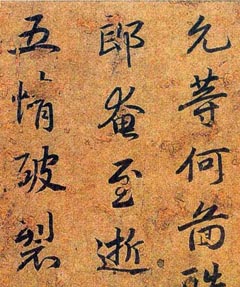 允等何啚
郎奄至逝
五情破裂